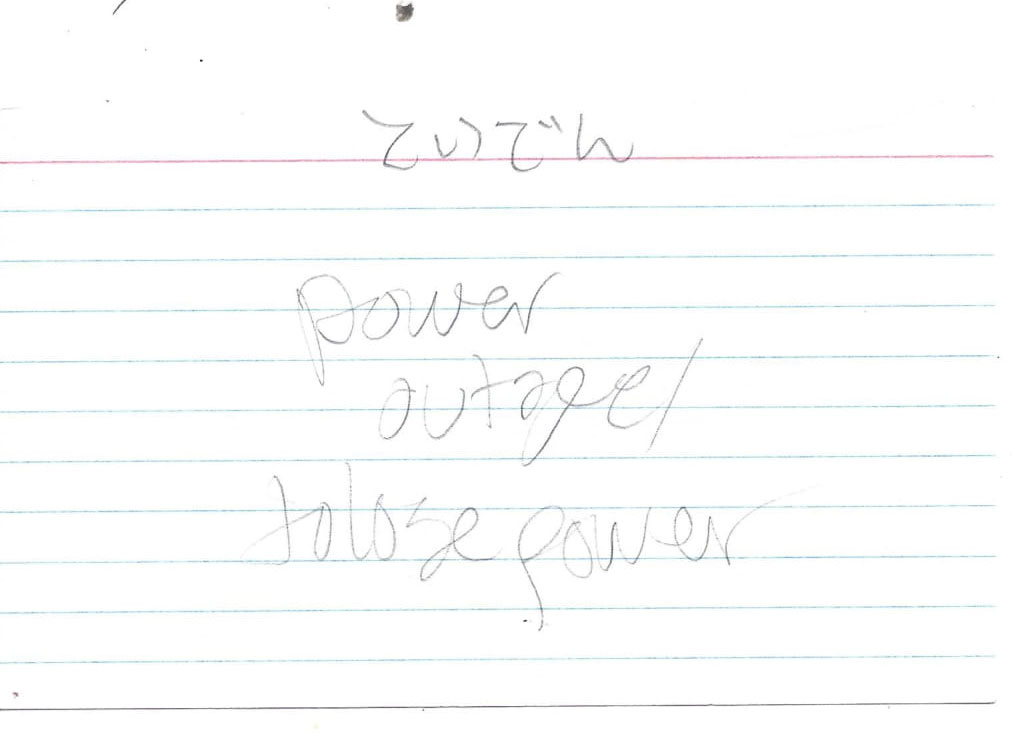 ていでん
power
outage/
to lose power